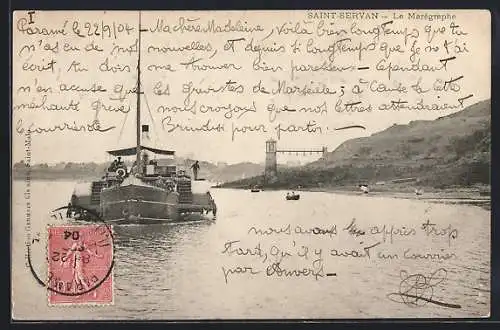 SAINT-SERVAN - Le Marégraphe
I
Paramé le 22/9/04 - Ma chère Madeleine, Voilà bien longtemps que tu
n'as eu de nos nouvelles, et depuis si longtemps que je ne t'ai
écrit, tu dois me trouver bien paresseux - Cependant
n'en accuse que les grévistes de Marseille ; à Cause de cette
méchante grève nous croyions que nos lettres attendraient
le courrier de Brindisi pour partir. -
nous avons su après trop
tard, qu'il y avait un courrier
par Anvers -
Collection Germain fils aîné, Saint-Malo
PARAMÉ
22
04